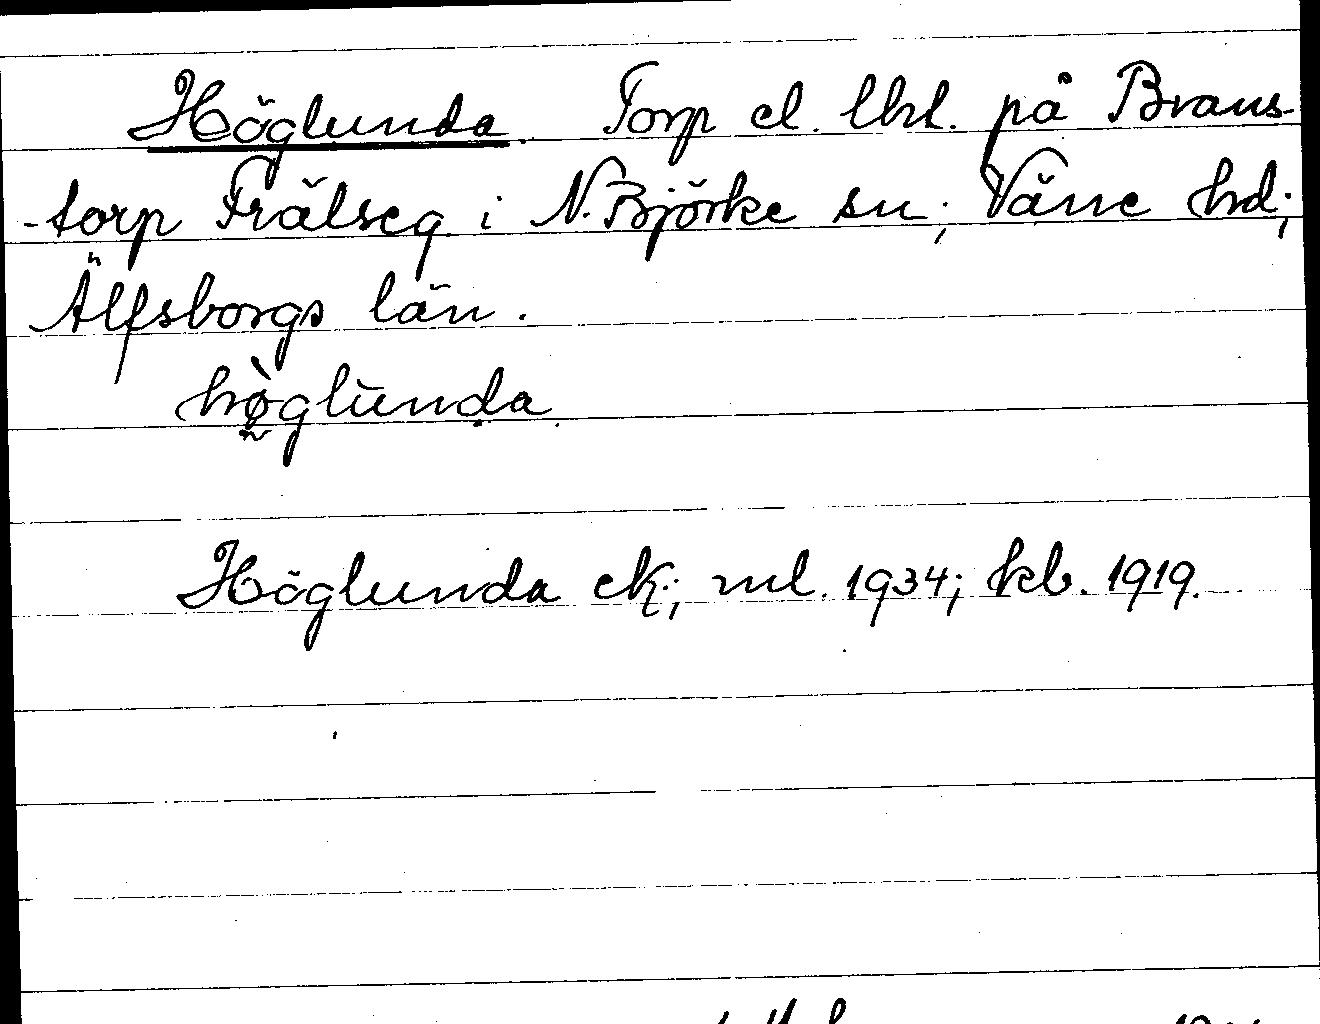 Höglunda. Torp el. lht. på Brans-
-torp Frälseg. i N. Björke sn; Väne hd;
Älfsborgs län.
hø̀glūnda.
Höglunda ek; ml. 1934; kb. 1919.